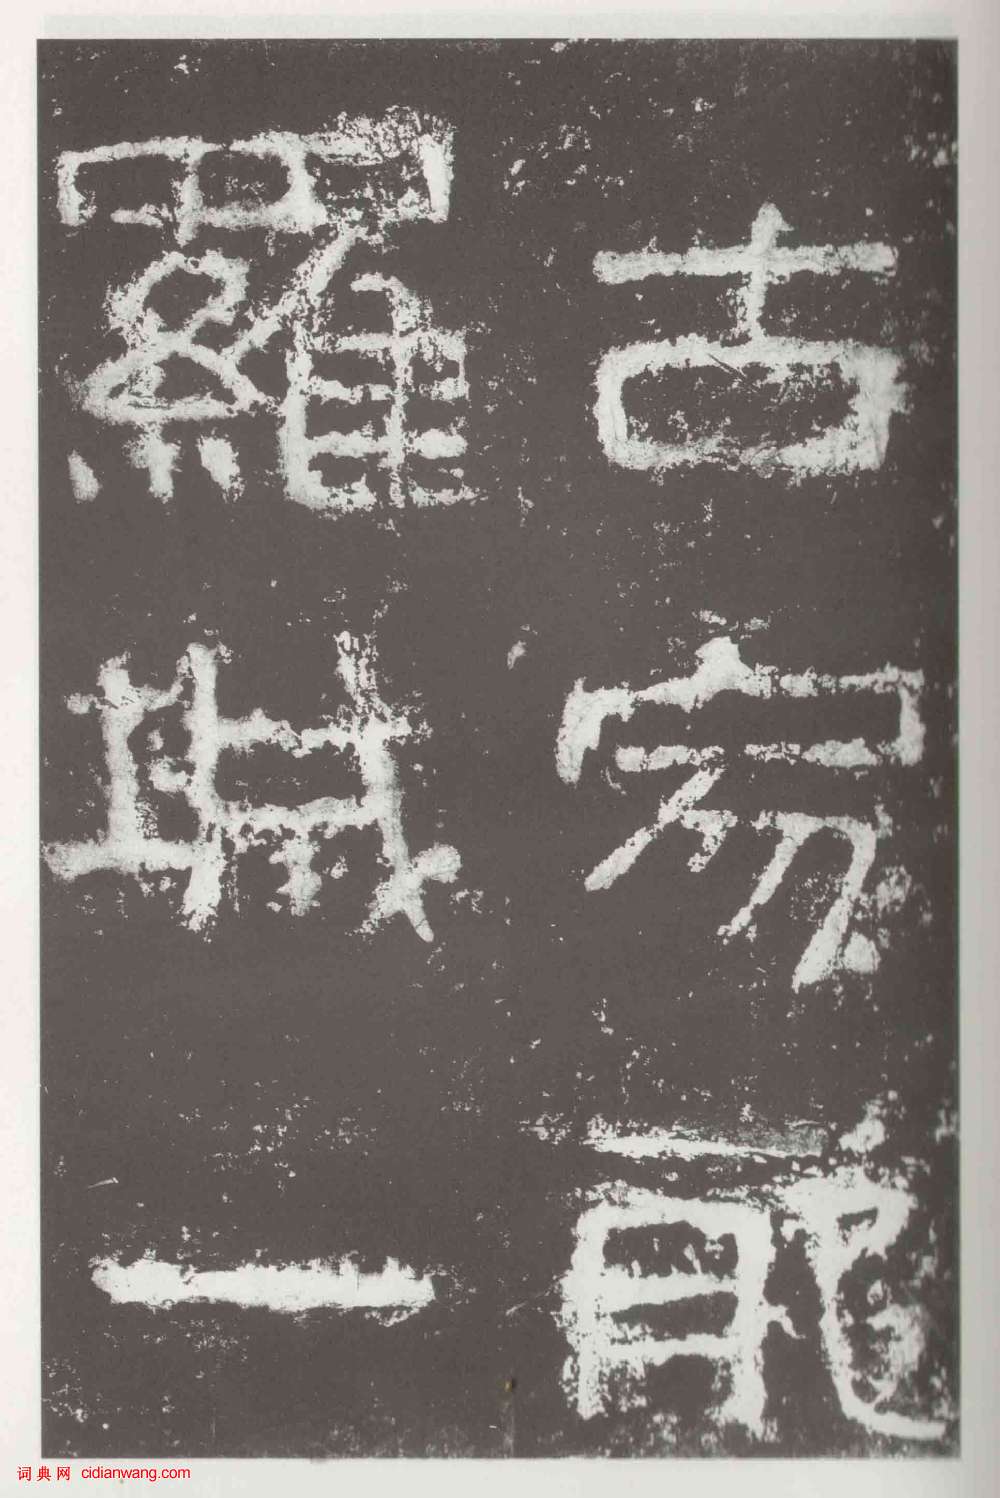 古家耶
羅城一
词典网 cidianwang.com